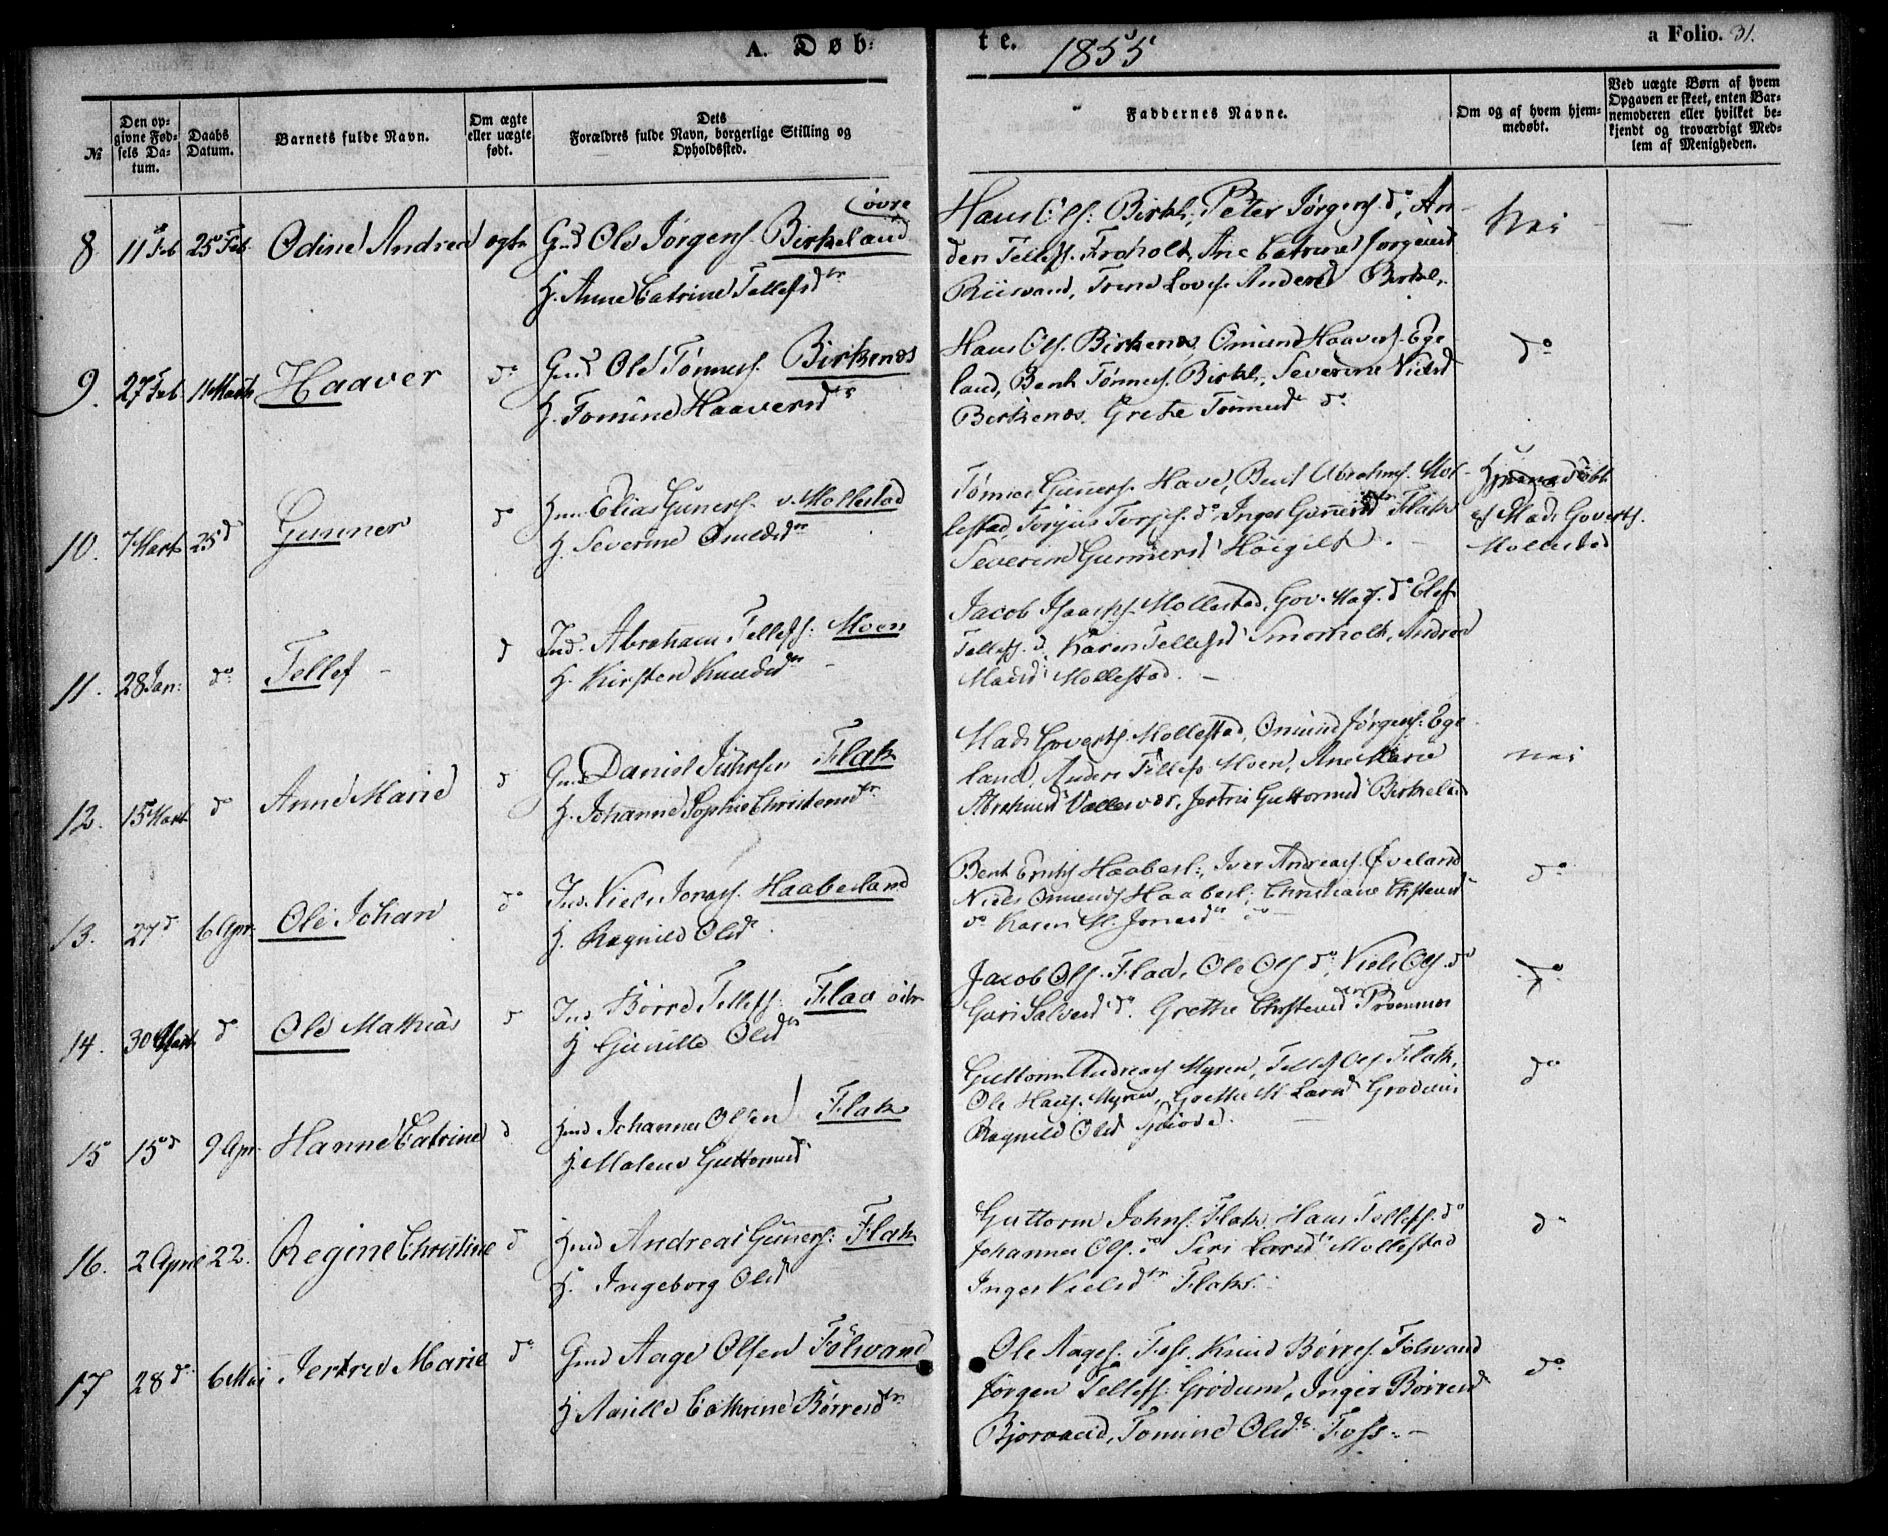 A. Døb: te. 1855 a Folio. 31.
№
Den op-
givne Fød-
sels Da-
tum.
Daabs
Datum.
Barnets fulde Navn.
Om ægte
eller uægte
født.
Dets
Forældres fulde Navn, borgerlige Stilling og
Opholdssted.
Faddernes Navne.
Om og af hvem hjem-
medøbt.
Ved uægte Børn af hvem
Opgaven er skeet, enten Bar-
nemoderen eller hvilket be-
kjendt og troværdigt Med-
lem af Menigheden.
8. 11 Feb 25 Feb. Odine Andrea ægte
øvre
Gmd Ole Jørgens. Birkeland
H. Anne Catrine Tellefsdtr
Hans Ols: Birkl:, Peter Jørgens do, An-
ders Tellefs. Froholt, Ane Catrine Jørgensd
Riisvand, Trine Lovise Andersd Birkl.
Nei
9. 27 Feb. 11 Marts Haaver do
Gmd Ole Tønnes. Birkenes
H. Tomine Haaversdtr
Hans Ols. Birkenes, Omund Haavers. Ege
land, Bent Tønnes. Birkl:, Severine Nielsd
Birkenes. Grete Tønnesd do
do
10. 7 Marts 25 d Gunner do
Elias Guners. v. Mollestad
H. Severine Omundsdtr
Tønnes Guners. Have, Bent Abrahms. Mol-
lestad, Torjus Torjs. do, Inger Gunersd Flak
Severine Gunnersd Høigilt.
Hjemmedøbt
af Mads Goverts.
Mollestad
11. 28 Jan: do Tellef d
Ind. Abraham Tellefs: Moen
H. Kirsten Knudsdtr
Jacob Isaachs. Mollestad, Gov. Mads. do Elef
Tellefs. d. Karen Tellefsd Smorholt, Andrea
Madsd Mollestad.
12. 15 Marts d Anne Marie d
Gmd Daniel Juhlsen Flak
H. Johanne Sophie Christensdtr
Mads Goverts. Mollestad, Omund Jørgens: Ege
land, Anders Tellefs Moen, Ane Marie
Abrahmsd Vallesvær, Jertru Guttormsd Birkeland
Nei
13. 27 d 6 Apr. Ole Johan do
Ind. Niels Jonas. Haabesland
H. Ragnild Olsd.
Bent Haabesl:, Iver Andreas. Øveland
Niels Omunds Haabesl; Christiane Chstensd
do Karen M. Jonasd do
do
14. 30 Marts d Ole Mathias d
Ind Børre Tellefs: Flaa
H Gunille Olsd
Jacob Ols. Flaa, Ole Ols do, Niels Ols. do
Guri Salvesd do. Grethe Chrstensd
do
15 15 d 9 Apr. Hanne Catrine d
Hmd Johannes Olsen Flak
H. Malene Guttormsd
Guttorm Andreas Myren, Tellef Ols Flak,
Ole Hans. Myren, Grethe M. Larsd Grødum
Ragnild Olsd
do
16. 2 April 22. Regine Christine d
Hmd Andreas Guners: Flak
H. Ingeborg Olsd
Guttorm Johns. Flak. Hans Tellefs. do
Johannes Ols. do Siri Larsd Mollestad
Inger Nielsdtr Flak.
do
17 28 d 6 Mai Jertru Marie do
Gmd Aage Olsen Følsvand
H Aasille Cathrine Børresdtr
Ole Aages. Foss. Knud Børres. Følsvand
Jørgen Tellefs. Grødum, Inger Børresd
Bjorvand, Tomine Olsd. Foss.
do